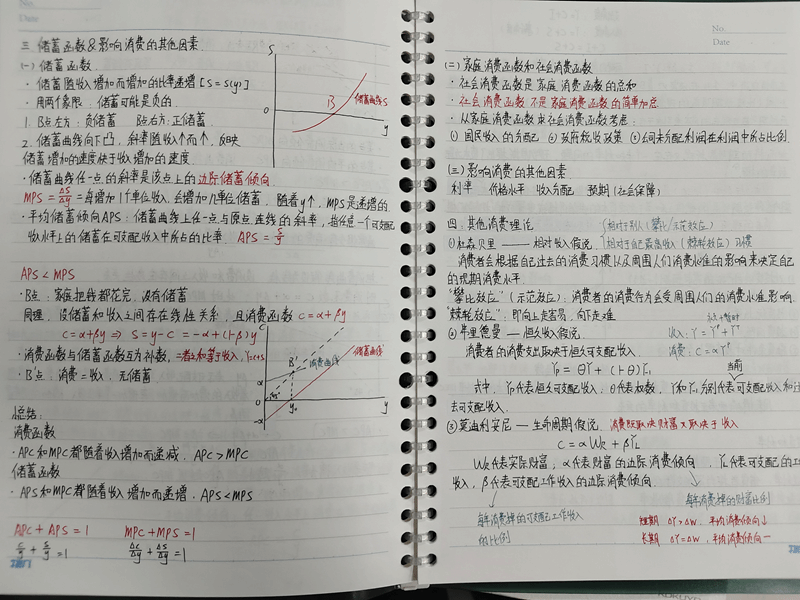 No.
Date
三 储蓄函数&影响消费的其他因素.
(一) 储蓄函数
· 储蓄随收入增加而增加的比率递增 [S=S(y)]
· 用两个象限: 储蓄可能是负的.
1. B点左方: 负储蓄 B点右方: 正储蓄.
2. 储蓄曲线向下凸, 斜率随收入个而个, 反映
储蓄增加的速度快于收入增加的速度
S
B
储蓄曲线S
0
y
· 储蓄曲线任一点的斜率是该点上的边际储蓄倾向.
MPS = ΔS/Δy = 每增加1个单位收入, 会增加几单位储蓄. 随着y↑, MPS是递增的.
· 平均储蓄倾向APS: 储蓄曲线上任一点与原点连线的斜率, 指任意一个可支配
收水平上的储蓄在可支配收入中所占的比率. APS = S/y
APS < MPS
· B点: 家庭把钱都花完, 没有储蓄
同理, 设储蓄和收入间存在线性关系, 且消费函数 c=α+βy
c=α+βy ⇒ S=y-c = -α+(1-β)y
· 消费函数与储蓄函数互为补数, 二者之和等于收入, Y=c+s
· B'点: 消费=收入, 无储蓄
C
B'
消费曲线
储蓄曲线
α
0
45°
y₀
y
-α
总结:
消费函数
· APC和MPC都随收入增加而递减, APC > MPC
储蓄函数
· APS和MPC都随着收入增加而递增, APS<MPS
APC+APS=1 MPC+MPS=1
c/y + s/y =1 Δc/Δy + Δs/Δy =1
No.
Date
(二) 家庭消费函数和社会消费函数
· 社会消费函数是家庭消费函数的总和
· 社会消费函数不是家庭消费函数的简单加总
· 从家庭消费函数求社会消费函数考虑:
① 国民收入的分配 ② 政府税收政策 ③公司未分配利润在利润中所占比例.
(三) 影响消费的其他因素
利率 价格水平 收入分配 预期(社会保障)
四. 其他消费理论
相对于别人(攀比/示范效应)
①杜森贝里 —— 相对收入假说. 相对于自己最高收入(棘轮效应)习惯
消费者会根据自己过去的消费习惯以及周围人们消费水准的影响来决定自己
的预期消费水平.
"攀比效应"(示范效应): 消费者的消费行为会受周围人们的消费水准影响.
"棘轮效应": 即向上走容易, 向下走难.
②弗里德曼 — 恒久收入假说.
收入: Y=Yᴾ+Yᵀ
消费者的消费支出取决于恒久可支配收入.
消费: C=αYᴾ
Yp = θY + (1-θ)Y₁
当前
式中, Yp代表恒久可支配收入, θ代表权数, Y和Y₁分别代表可支配收入和过
去可支配收入.
③莫迪利安尼 — 生命周期假说. 消费既取决财富又取决于收入
C = αWR + βYL
WR代表实际财富, α代表财富的边际消费倾向, YL代表可支配的工
收入, β代表可支配工作收入的边际消费倾向.
每年消费掉的财富比例
每年消费掉的可支配工作收入
的比例
短期 ΔY>ΔW, 平均消费倾向↓
长期 ΔY=ΔW, 平均消费倾向一